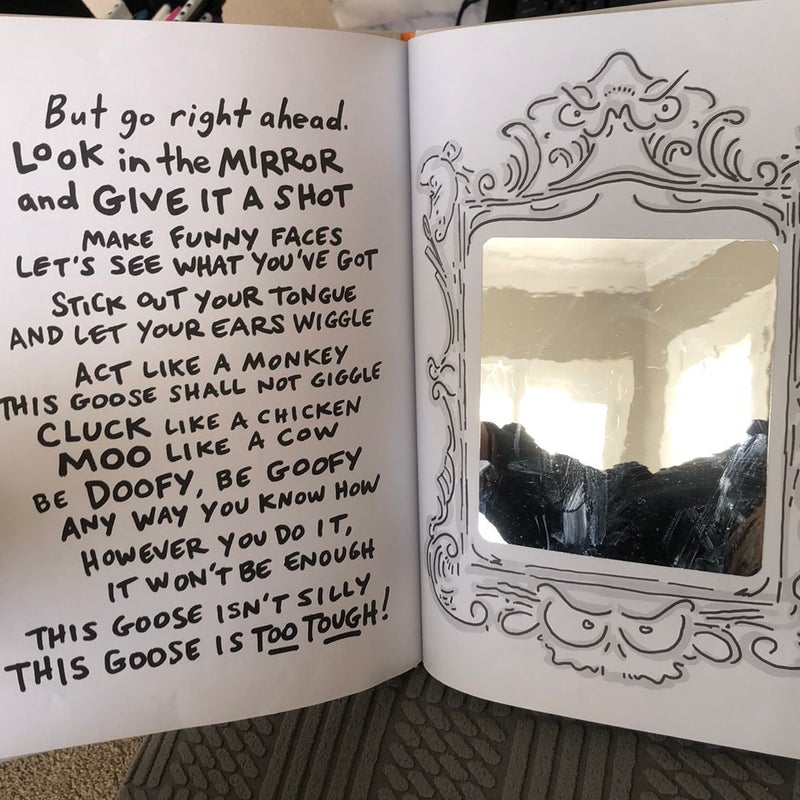 But go right ahead.
LOOK in the MIRROR
and GIVE IT A SHOT
MAKE FUNNY FACES
LET'S SEE WHAT YOU'VE GOT
STICK OUT YOUR TONGUE
AND LET YOUR EARS WIGGLE
ACT LIKE A MONKEY
THIS GOOSE SHALL NOT GIGGLE
CLUCK LIKE A CHICKEN
MOO LIKE A COW
BE DOOFY, BE GOOFY
ANY WAY YOU KNOW HOW
HOWEVER YOU DO IT,
IT WON'T BE ENOUGH
THIS GOOSE ISN'T SILLY
THIS GOOSE IS TOO TOUGH!